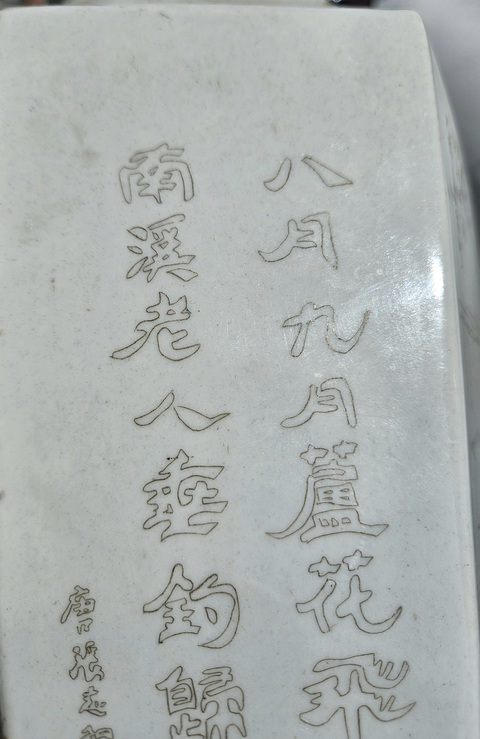 八月九月蘆花飛
南溪老人垂釣歸
唐張志和